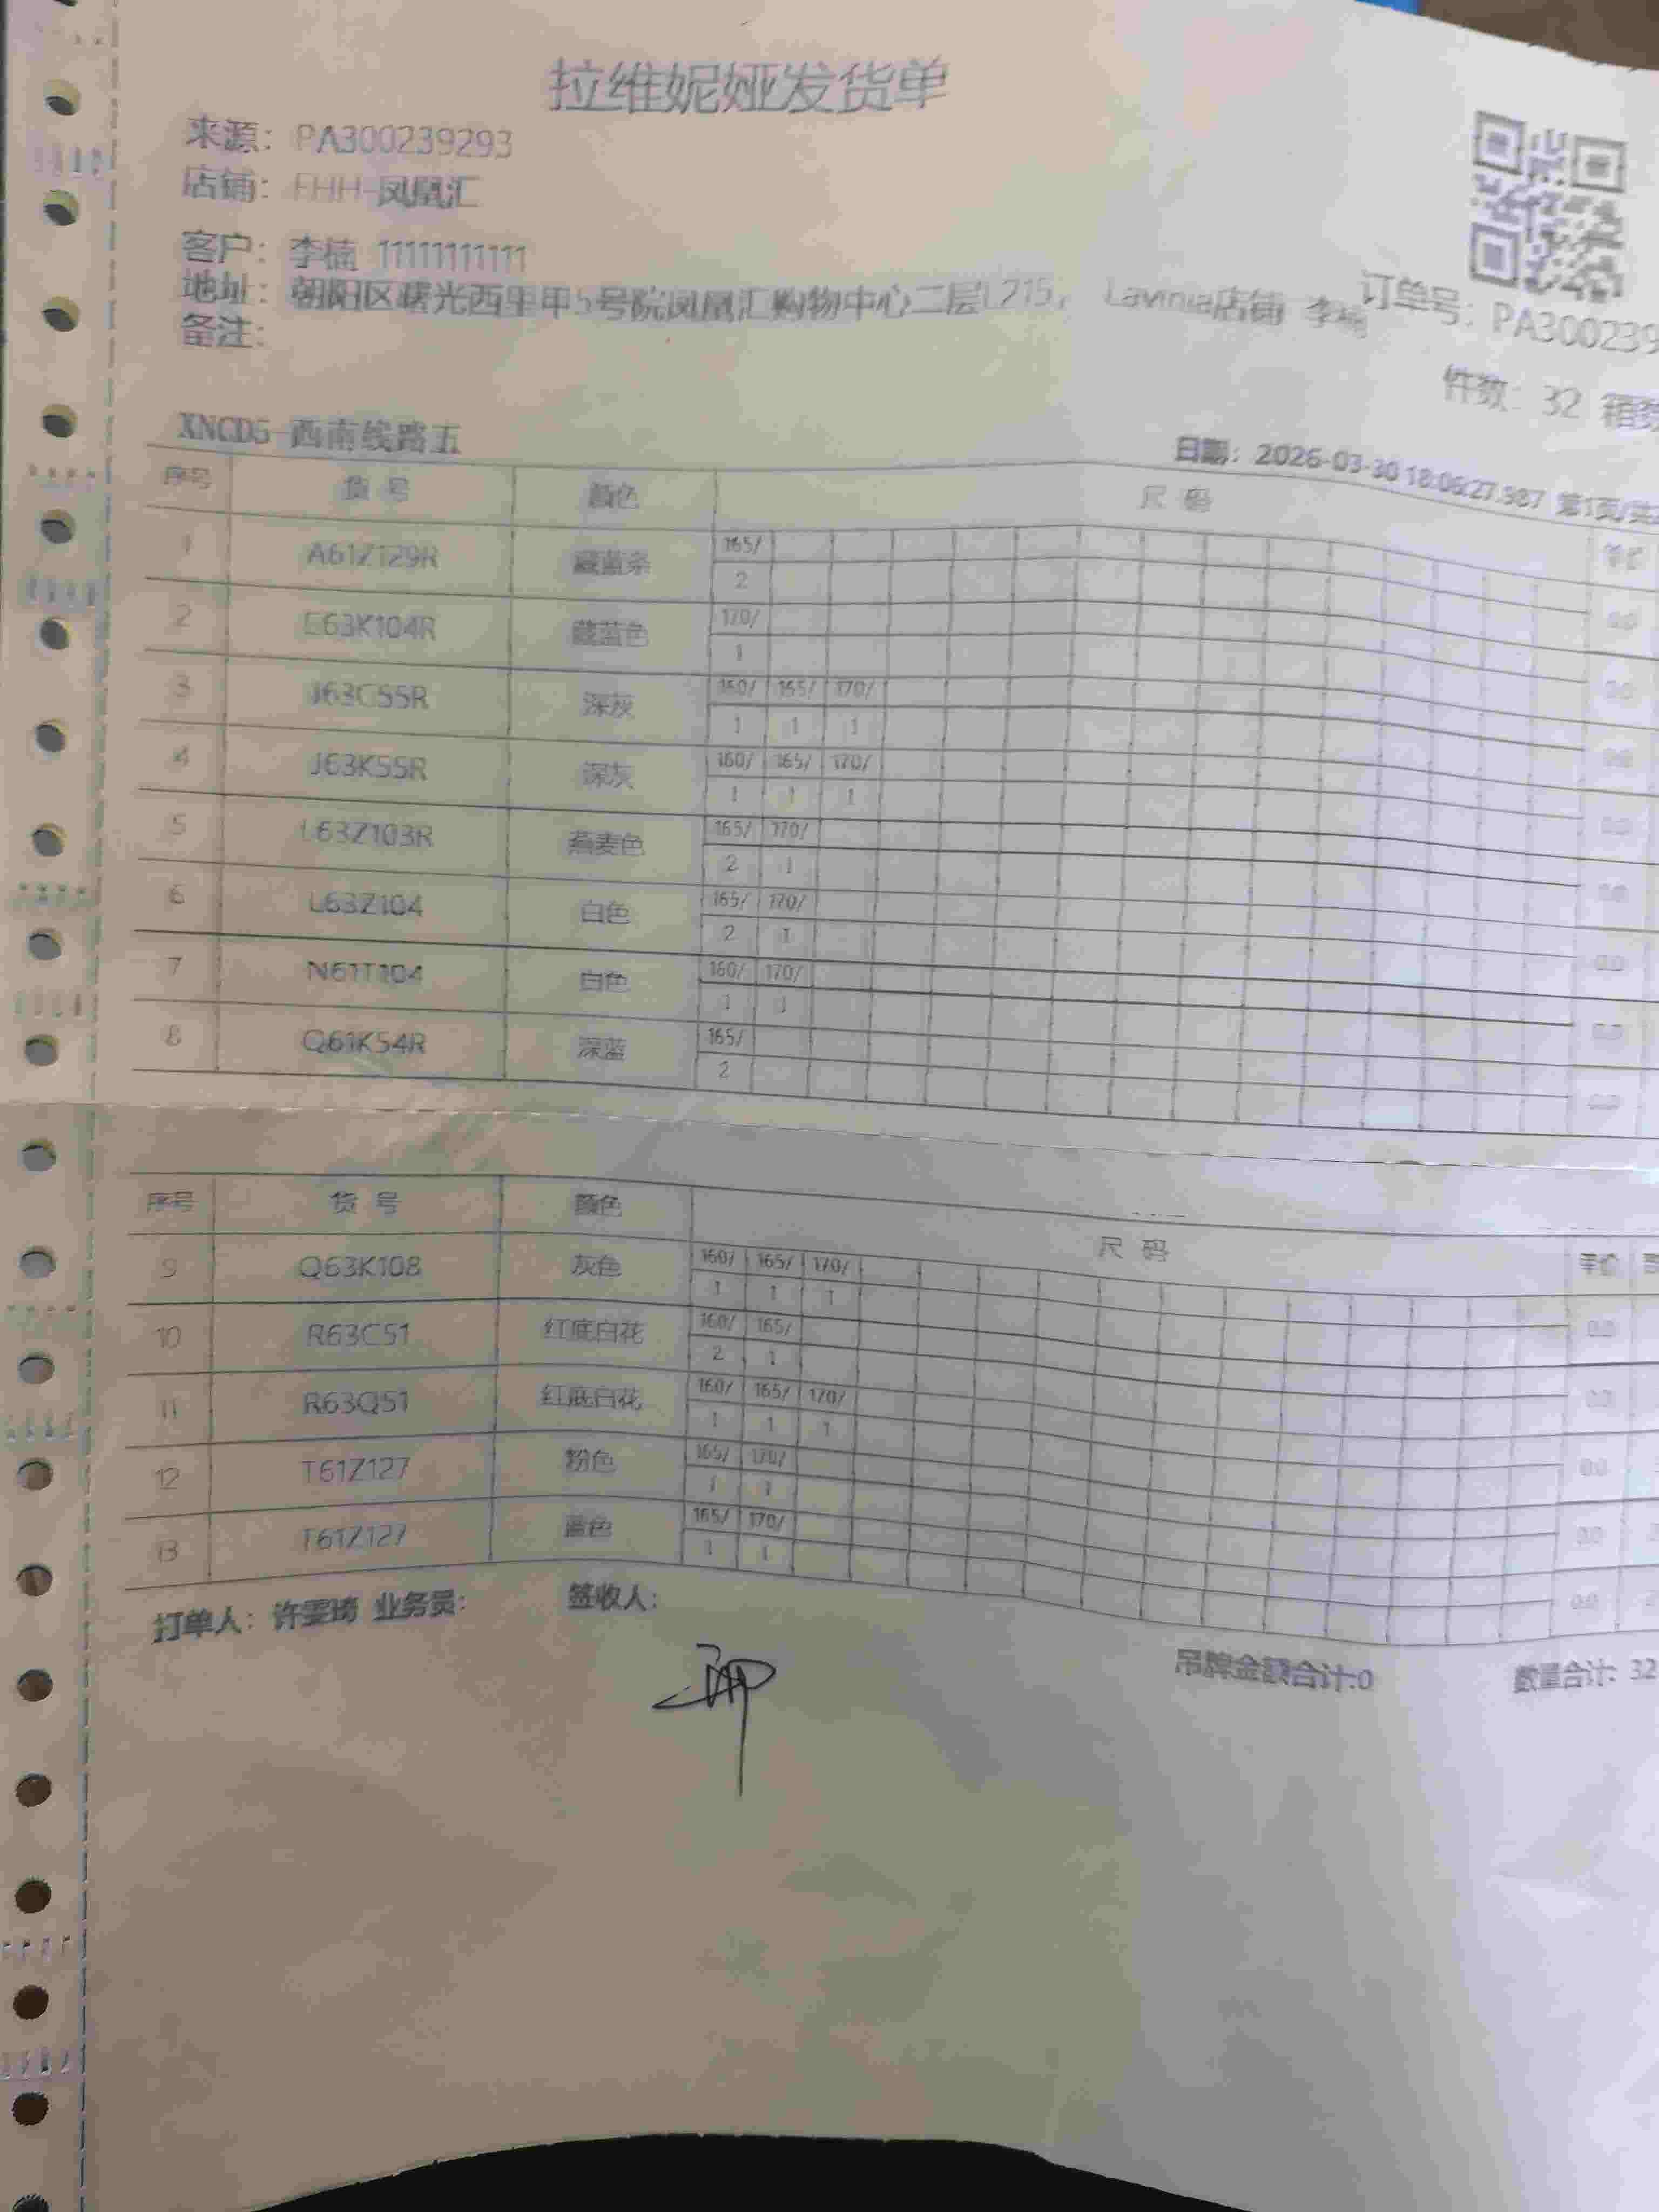 拉维妮娅发货单
来源：PA300239293
店铺：FHH-凤凰汇
客户：李楠 11111111111
地址：朝阳区曙光西里甲5号院凤凰汇购物中心二层L215， Lavinia店铺 李楠
订单号：PA300239
备注：
件数：32 箱数
XNCD5-西南线路五
日期：2026-03-30 18:06:27.387 第1页/共
序号 货 号 颜色 尺 码 单价
1 A61Z129R 藏蓝条 165/ 0.0
2
2 E63K104R 藏蓝色 170/ 0.0
1
3 J63C55R 深灰 160/ 165/ 170/ 0.0
1 1 1
4 J63K55R 深灰 160/ 165/ 170/ 0.0
1 1 1
5 L63Z103R 燕麦色 165/ 170/ 0.0
2 1
6 L63Z104 白色 165/ 170/ 0.0
2 1
7 N61T104 白色 160/ 170/ 0.0
1 1
8 Q61K54R 深蓝 165/ 0.0
2
序号 货 号 颜色 尺 码 单价
9 Q63K108 灰色 160/ 165/ 170/ 0.0
1 1 1
10 R63C51 红底白花 160/ 165/ 0.0
2 1
11 R63Q51 红底白花 160/ 165/ 170/ 0.0
1 1 1
12 T61Z127 粉色 165/ 170/ 0.0
1 1
13 T61Z127 蓝色 165/ 170/ 0.0
1 1
打单人：许雯琦 业务员： 签收人：
吊牌金额合计:0 数量合计: 32